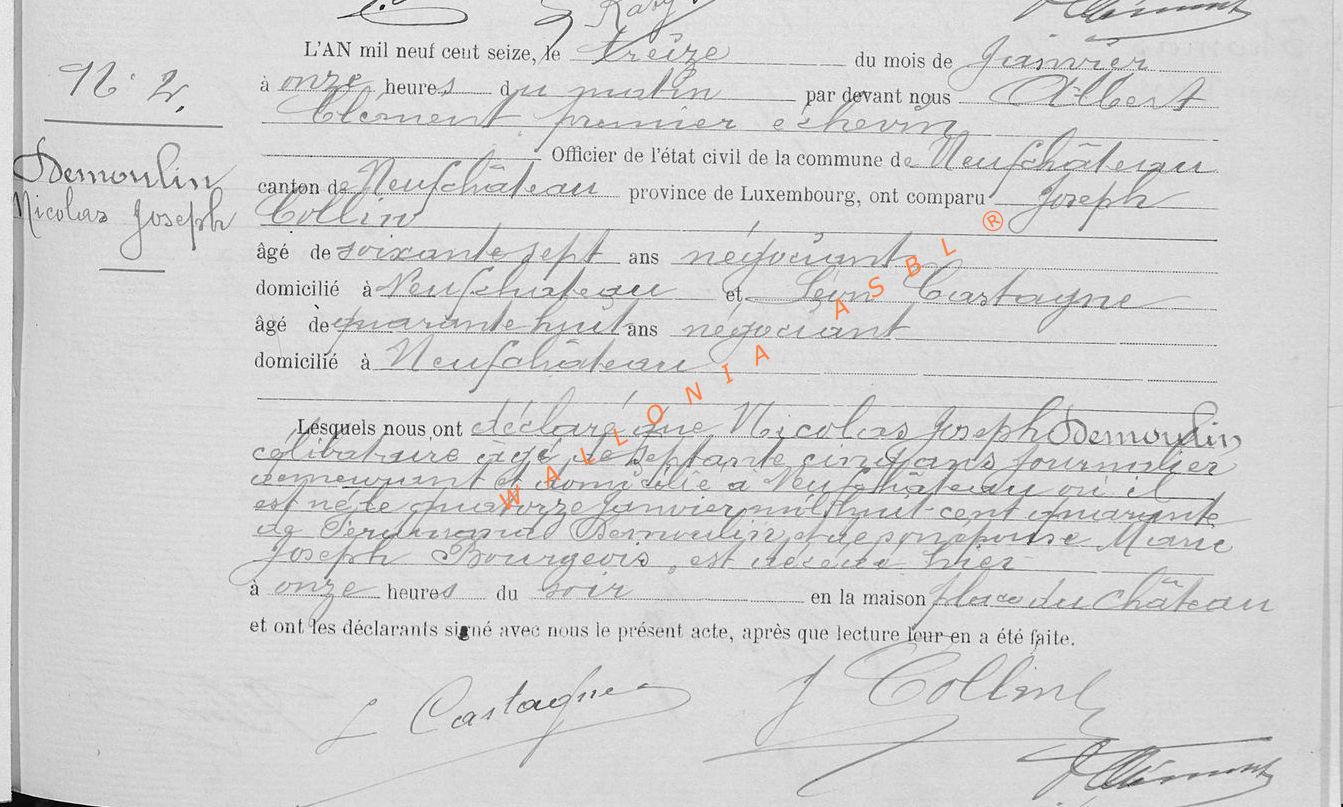 Kary
L'AN mil neuf cent seize, le treize du mois de Janvier
N° 2.
à onze heures du matin par devant nous Albert
Clément premier échevin
Officier de l'état civil de la commune de Neufchâteau
Demoulin
Nicolas Joseph
canton de Neufchâteau province de Luxembourg, ont comparu Joseph
Collin
âgé de soixante sept ans négociant
domicilié à Neufchateau et Léon Castagne
âgé de quarante huit ans négociant
domicilié à Neufchâteau
Lesquels nous ont déclaré que Nicolas Joseph Demoulin
célibataire âgé de septante cinq ans journalier
demeurant et domicilié à Neufchâteau où il
est né le quatorze Janvier mil huit-cent quarante
de Ferdinand Demoulin et de son épouse Marie
Joseph Bourgeois, est décédé hier
à onze heures du soir en la maison place du Château
et ont les déclarants signé avec nous le présent acte, après que lecture leur en a été faite.
L Castagne J Collin
A Clément
WALLONIA ASBL ®